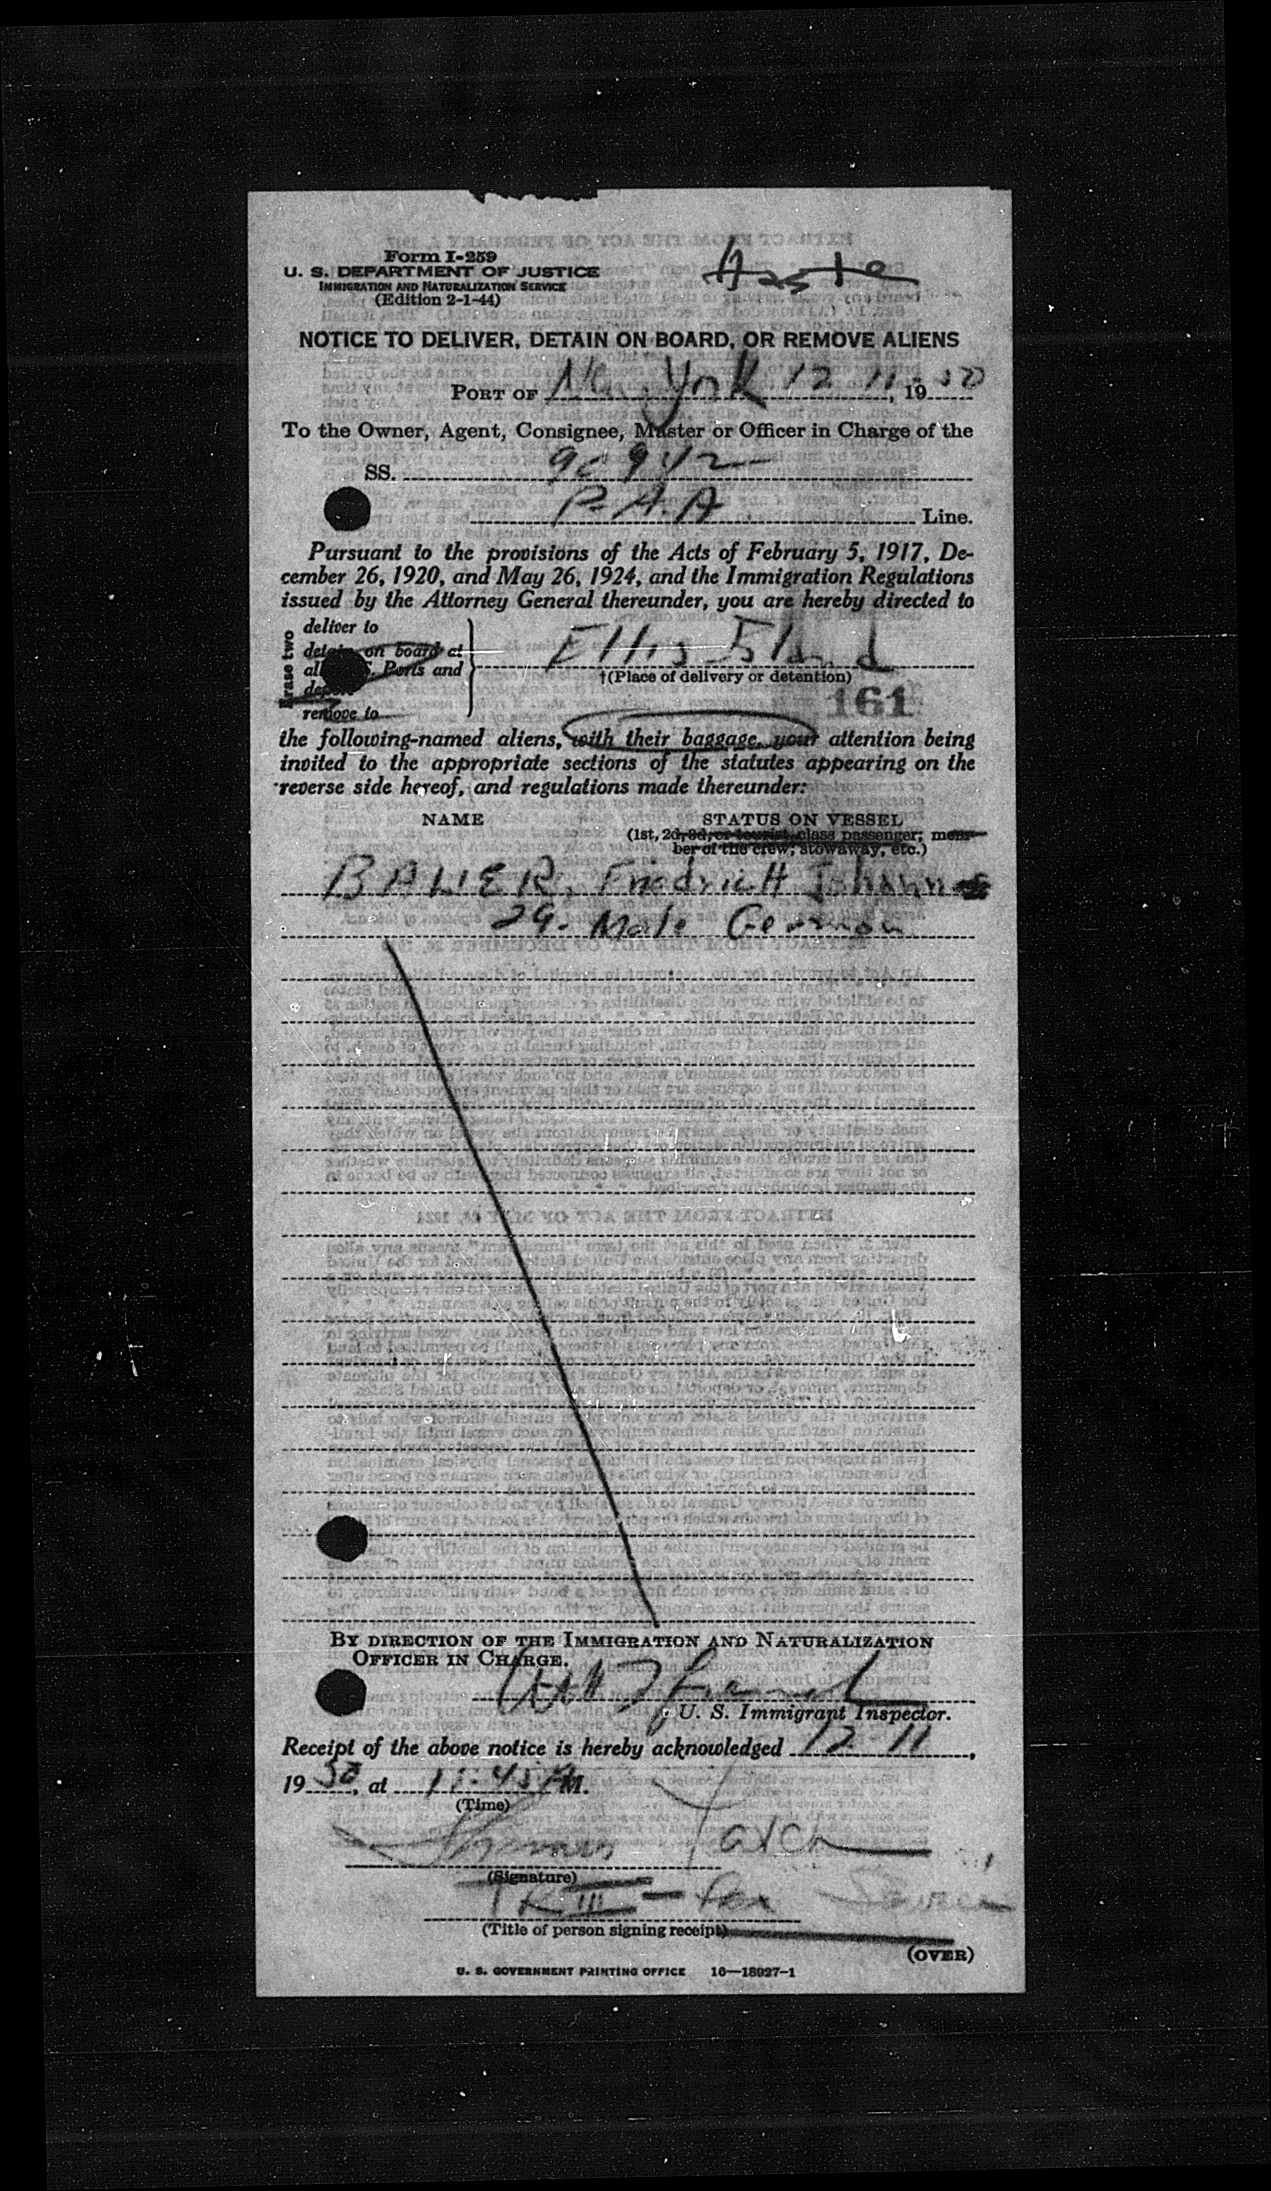 Form I-259
U. S. DEPARTMENT OF JUSTICE
IMMIGRATION AND NATURALIZATION SERVICE
(Edition 2-1-44)
NOTICE TO DELIVER, DETAIN ON BOARD, OR REMOVE ALIENS
PORT OF New York 12 11, 1950
To the Owner, Agent, Consignee, Master or Officer in Charge of the
SS. 90942
P.A.A Line.
Pursuant to the provisions of the Acts of February 5, 1917, De-
cember 26, 1920, and May 26, 1924, and the Immigration Regulations
issued by the Attorney General thereunder, you are hereby directed to
Erase two
deliver to
on board at
Ports and
remove to
Ellis Island
†(Place of delivery or detention)
161
the following-named aliens, with their baggage, your attention being
invited to the appropriate sections of the statutes appearing on the
reverse side hereof, and regulations made thereunder:
NAME STATUS ON VESSEL
(1st, 2d, 3d, or tourist class passenger; mem-
ber of the crew; stowaway, etc.)
BAUER, Friedrich Johann
29. Male German
BY DIRECTION OF THE IMMIGRATION AND NATURALIZATION
OFFICER IN CHARGE.
U. S. Immigrant Inspector.
Receipt of the above notice is hereby acknowledged 12 11,
1950, at 11:45 AM.
(Time)
(Signature)
(Title of person signing receipt)
(OVER)
U. S. GOVERNMENT PRINTING OFFICE 16—18027-1